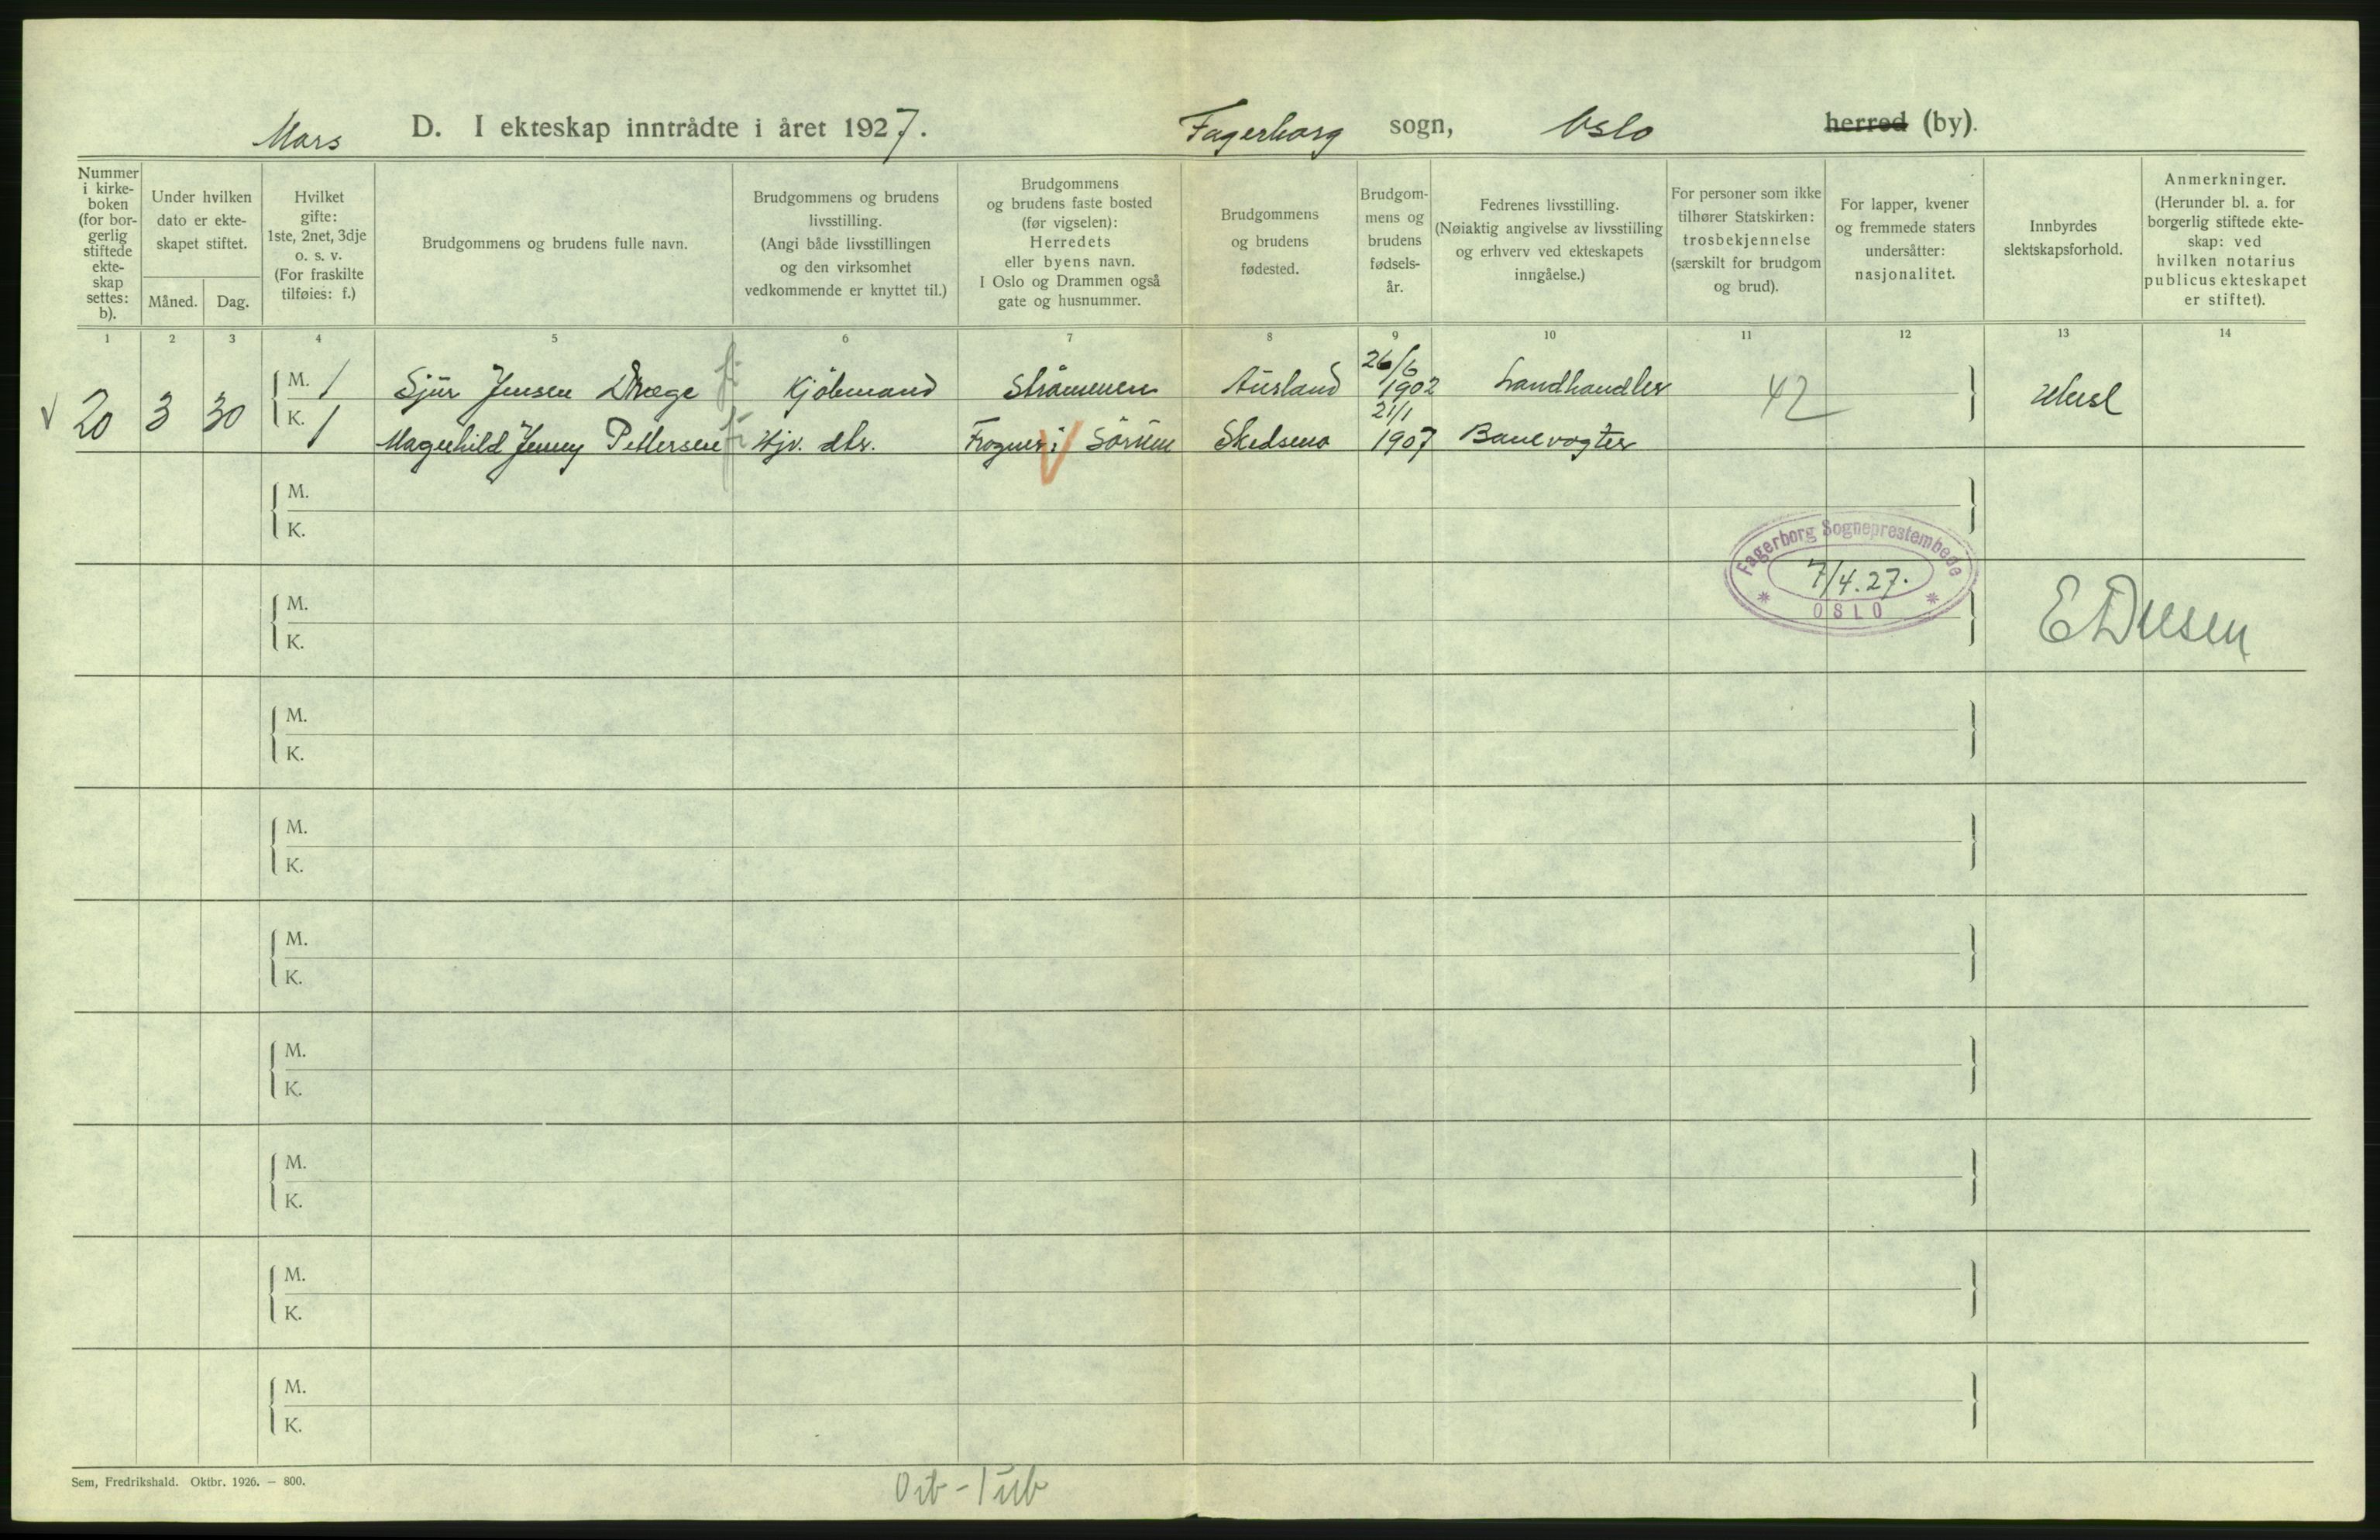 Mars D. I ekteskap inntrådte i året 1927. Fagerborg sogn, Oslo herred (by).
Nummer i kirke-boken (for bor-gerlig stiftede ekte-skap settes: b).
Under hvilken dato er ekte-skapet stiftet.
Måned. Dag.
Hvilket gifte: 1ste, 2net, 3dje o. s. v. (For fraskilte tilføies: f.)
Brudgommens og brudens fulle navn.
Brudgommens og brudens livsstilling. (Angi både livsstillingen og den virksomhet vedkommende er knyttet til.)
Brudgommens og brudens faste bosted (før vigselen): Herredets eller byens navn. I Oslo og Drammen også gate og husnummer.
Brudgommens og brudens fødested.
Brudgom-mens og brudens fødsels-år.
Fedrenes livsstilling. (Nøiaktig angivelse av livsstilling og erhverv ved ekteskapets inngåelse.)
For personer som ikke tilhører Statskirken: trosbekjennelse (særskilt for brudgom og brud).
For lapper, kvener og fremmede staters undersåtter: nasjonalitet.
Innbyrdes slektskapsforhold.
Anmerkninger. (Herunder bl. a. for borgerlig stiftede ekte-skap: ved hvilken notarius publicus ekteskapet er stiftet).
1 2 3 4 5 6 7 8 9 10 11 12 13 14
20 3 30 M. 1 Sjur Jensen Dræge Kjöbmand Strömmen Aurland 26/6 1902 Landhandler 42 Ubesl
K. 1 Magnhild Jenny Pettersen Hjv. dtr. Frogner i Sörum Skedsmo 21/1 1907 Banevogter
M.
K.
Fagerborg Sogneprestembede
7/4.27.
OSLO
M.
K.
M.
K.
M.
K.
M.
K.
M.
K.
M.
K.
M.
K.
M.
K.
Sem, Fredrikshald. Oktbr. 1926. — 800.